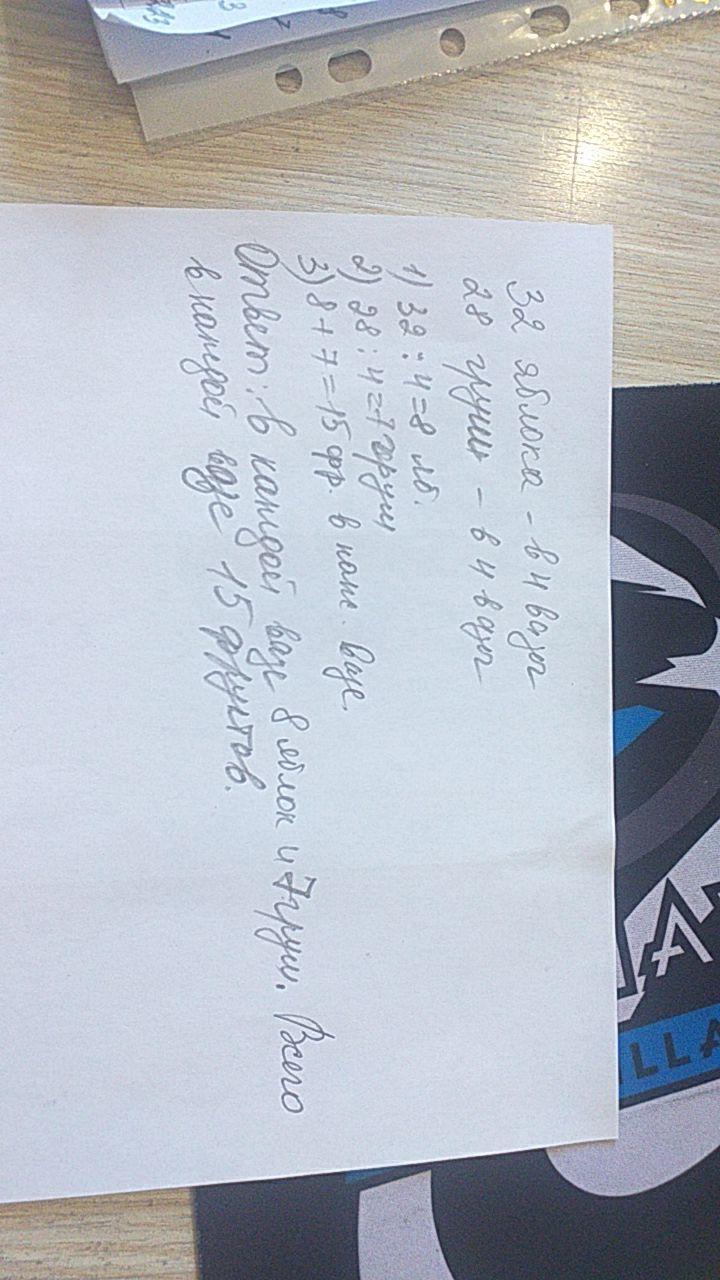 32 яблока - в 4 вазы
28 груш - в 4 вазы
1) 32 : 4 = 8 яб.
2) 28 : 4 = 7 груш
3) 8 + 7 = 15 фр. в каж. вазе.
Ответ: в каждой вазе 8 яблок и 7 груш. Всего
в каждой вазе 15 фруктов.
ILLA